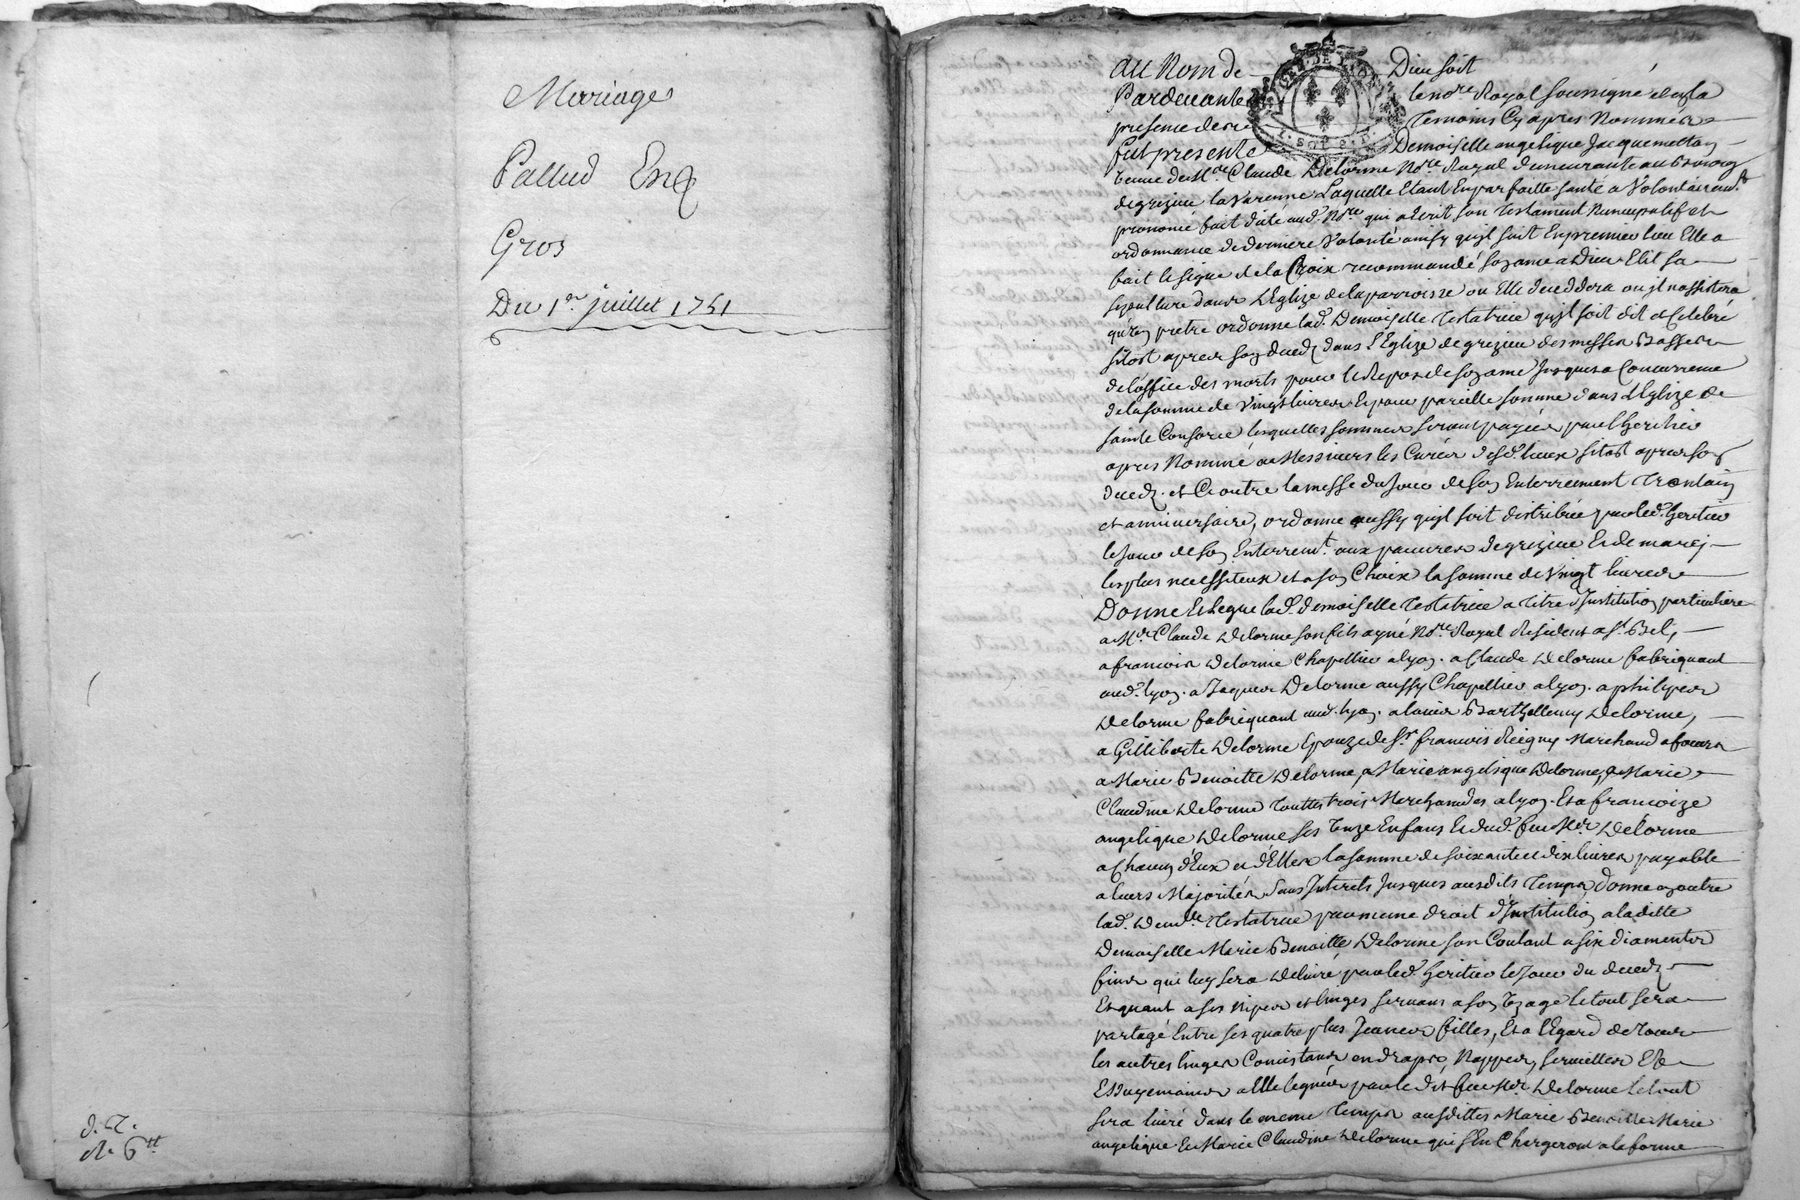 Mariage
Pallud Et
Gros
Du 1er juillet 1751
d. t.
R. 6 tt
GNRT DE LYON
2. SOLS. D.
Au Nom de Dieu soit
Pardevant le no.re Royal soussigné et en la
presence des Temoins Cy apres Nommés
fut presente Demoiselle angelique Jacquemetton
veuve de M.re Claude Delorme No.re Royal demeurante au Bourg
de grezieu la Varenne Laquelle Etant En parfaitte santé a Volontairem.t
prononcé fait dicté aud. No.re qui a Ecrit son Testament Nuncupatif et
ordonnance de derniere Volonté ainsy qu'jl suit En premier lieu Elle a
fait le signe de la Croix recommandé son ame a Dieu Elit sa
sepulture dans L'Eglize de la parroisse ou Elle deceddera ou jl n'assistera
qu'un pretre ordonne lad. Demoiselle Testatrice qu'jl soit dit et Celebré
sitost apres son deced dans l'Eglize de grezieu des messes Basses
de l'office des morts pour le Repos de son ame Jusques a Concurrence
de la somme de Vingt livres Et pour pareille somme dans L'Eglize de
sainte Consorce lesquelles sommes seront payées par l'heritier
apres Nommé a Messieurs les Curés desd. lieux sitost apres son
deced. et Ce outre la messe du Jour de son Enterrement Trentain
et anniversaire, ordonne aussy qu'jl soit distribué par led. heritier
le Jour de son Enterrem.t aux pauvres de grezieu Et de marcj
les plus necessiteux et a son Choix la somme de Vingt livres
Donne Et legue lad. demoiselle Testatrice a titre d'Institution particuliere
a M.re Claude Delorme son fils ayné No.re Royal Resident a S.t Bel,
a francois Delorme Chapellier a lyon. a Claude Delorme fabriquant
aud. lyon. a Jaques Delorme aussy Chapellier a lyon. a philipes
Delorme fabriquant aud. lyon. a louis Barthellemy Delorme,
a Gilliberte Delorme Epouze de S.r francois Reigny Marchand a fours
a Marie Benoitte Delorme, a Marie angelique Delorme, a Marie
Claudine Delorme Touttes trois Marchandes a lyon. Et a francoize
angelique Delorme ses Unze Enfans Et dud. feu M.re Delorme
a Chacun d'Eux et d'Elles la somme de soixante et dix livres payable
a leurs Majorités, Sans Interets Jusques ausdits Temps donne en outre
lad. Dem.lle Testatrice par meme droit d'Institution a laditte
Demoiselle Marie Benoitte Delorme son Coulant a six diamentes
fines qui luy sera Delivré par led. heritier le Jour du deced
Et quant a ses Nipes et linges servans a son Uzage le tout sera
partagé Entre ses quatre plus Jeunes filles, Et a l'Egard de tous
les autres linges Consistans en draps, Nappes, serviettes Et
Essuyemains a Elle legués par le dit feu M.re Delorme le tout
sera livré dans le meme Temps ausdittes Marie Benoitte Marie
angelique Et Marie Claudine Delorme qui s'En Chargeront a la forme